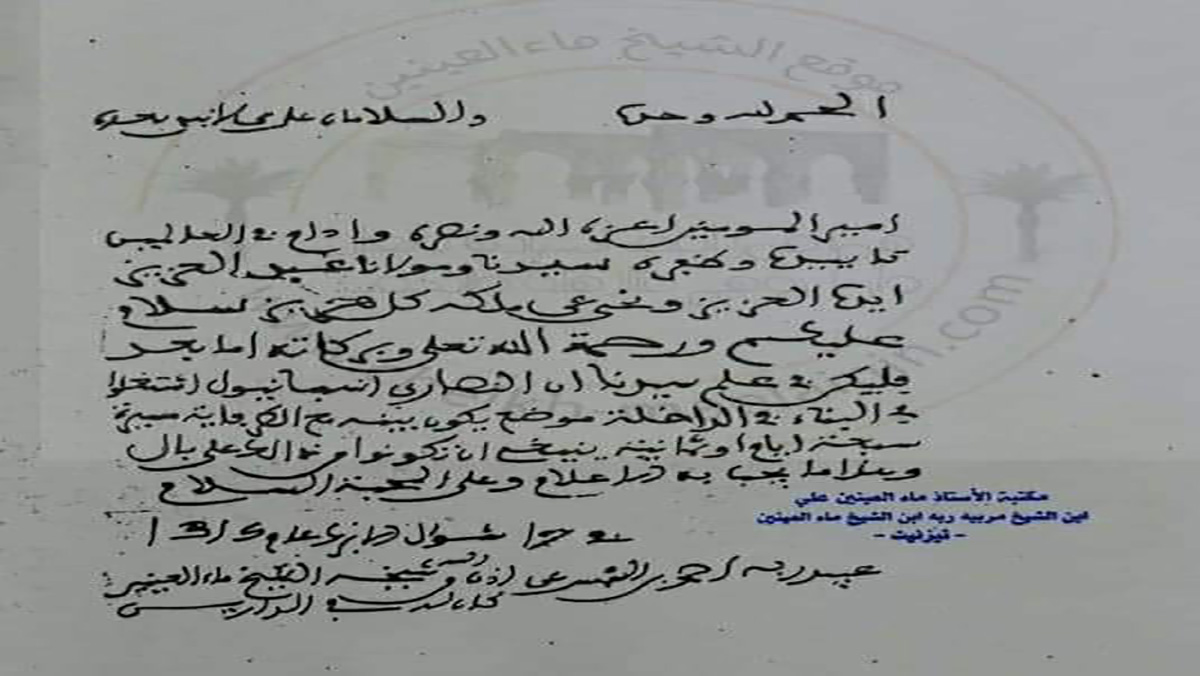 موقع الشيخ ماء العينين
الحمد لله وحده والسلام على من لا نبي بعده
امير المومنين اعزه الله ونصره وادام في
سيدنا ومولانا عبد العزيز
ايها العزيز كل سلام
عليكم ورحمة الله تعلى وبركاته اما بعد
فليكن في علم سيدنا ان النصارى اسبانيول اشتغلوا
في البناء في الداخلة موضع يكون بينه مع الطرفاية مسيرة
سبعة ايام او ثمانية ينبغي ان تكونوا من ذالك على بال
وهذا ما يجب به الاعلام وعلى المحبة السلام
في شوال عام 1315
عبد ربه احمد بن الشمس عن اذن شيخه الشيخ ماء العينين
كان الله لهم في الدارين
مكتبة الأستاذ ماء العينين علي
ابن الشيخ مربيه ربه ابن الشيخ ماء العينين
- تيزنيت -